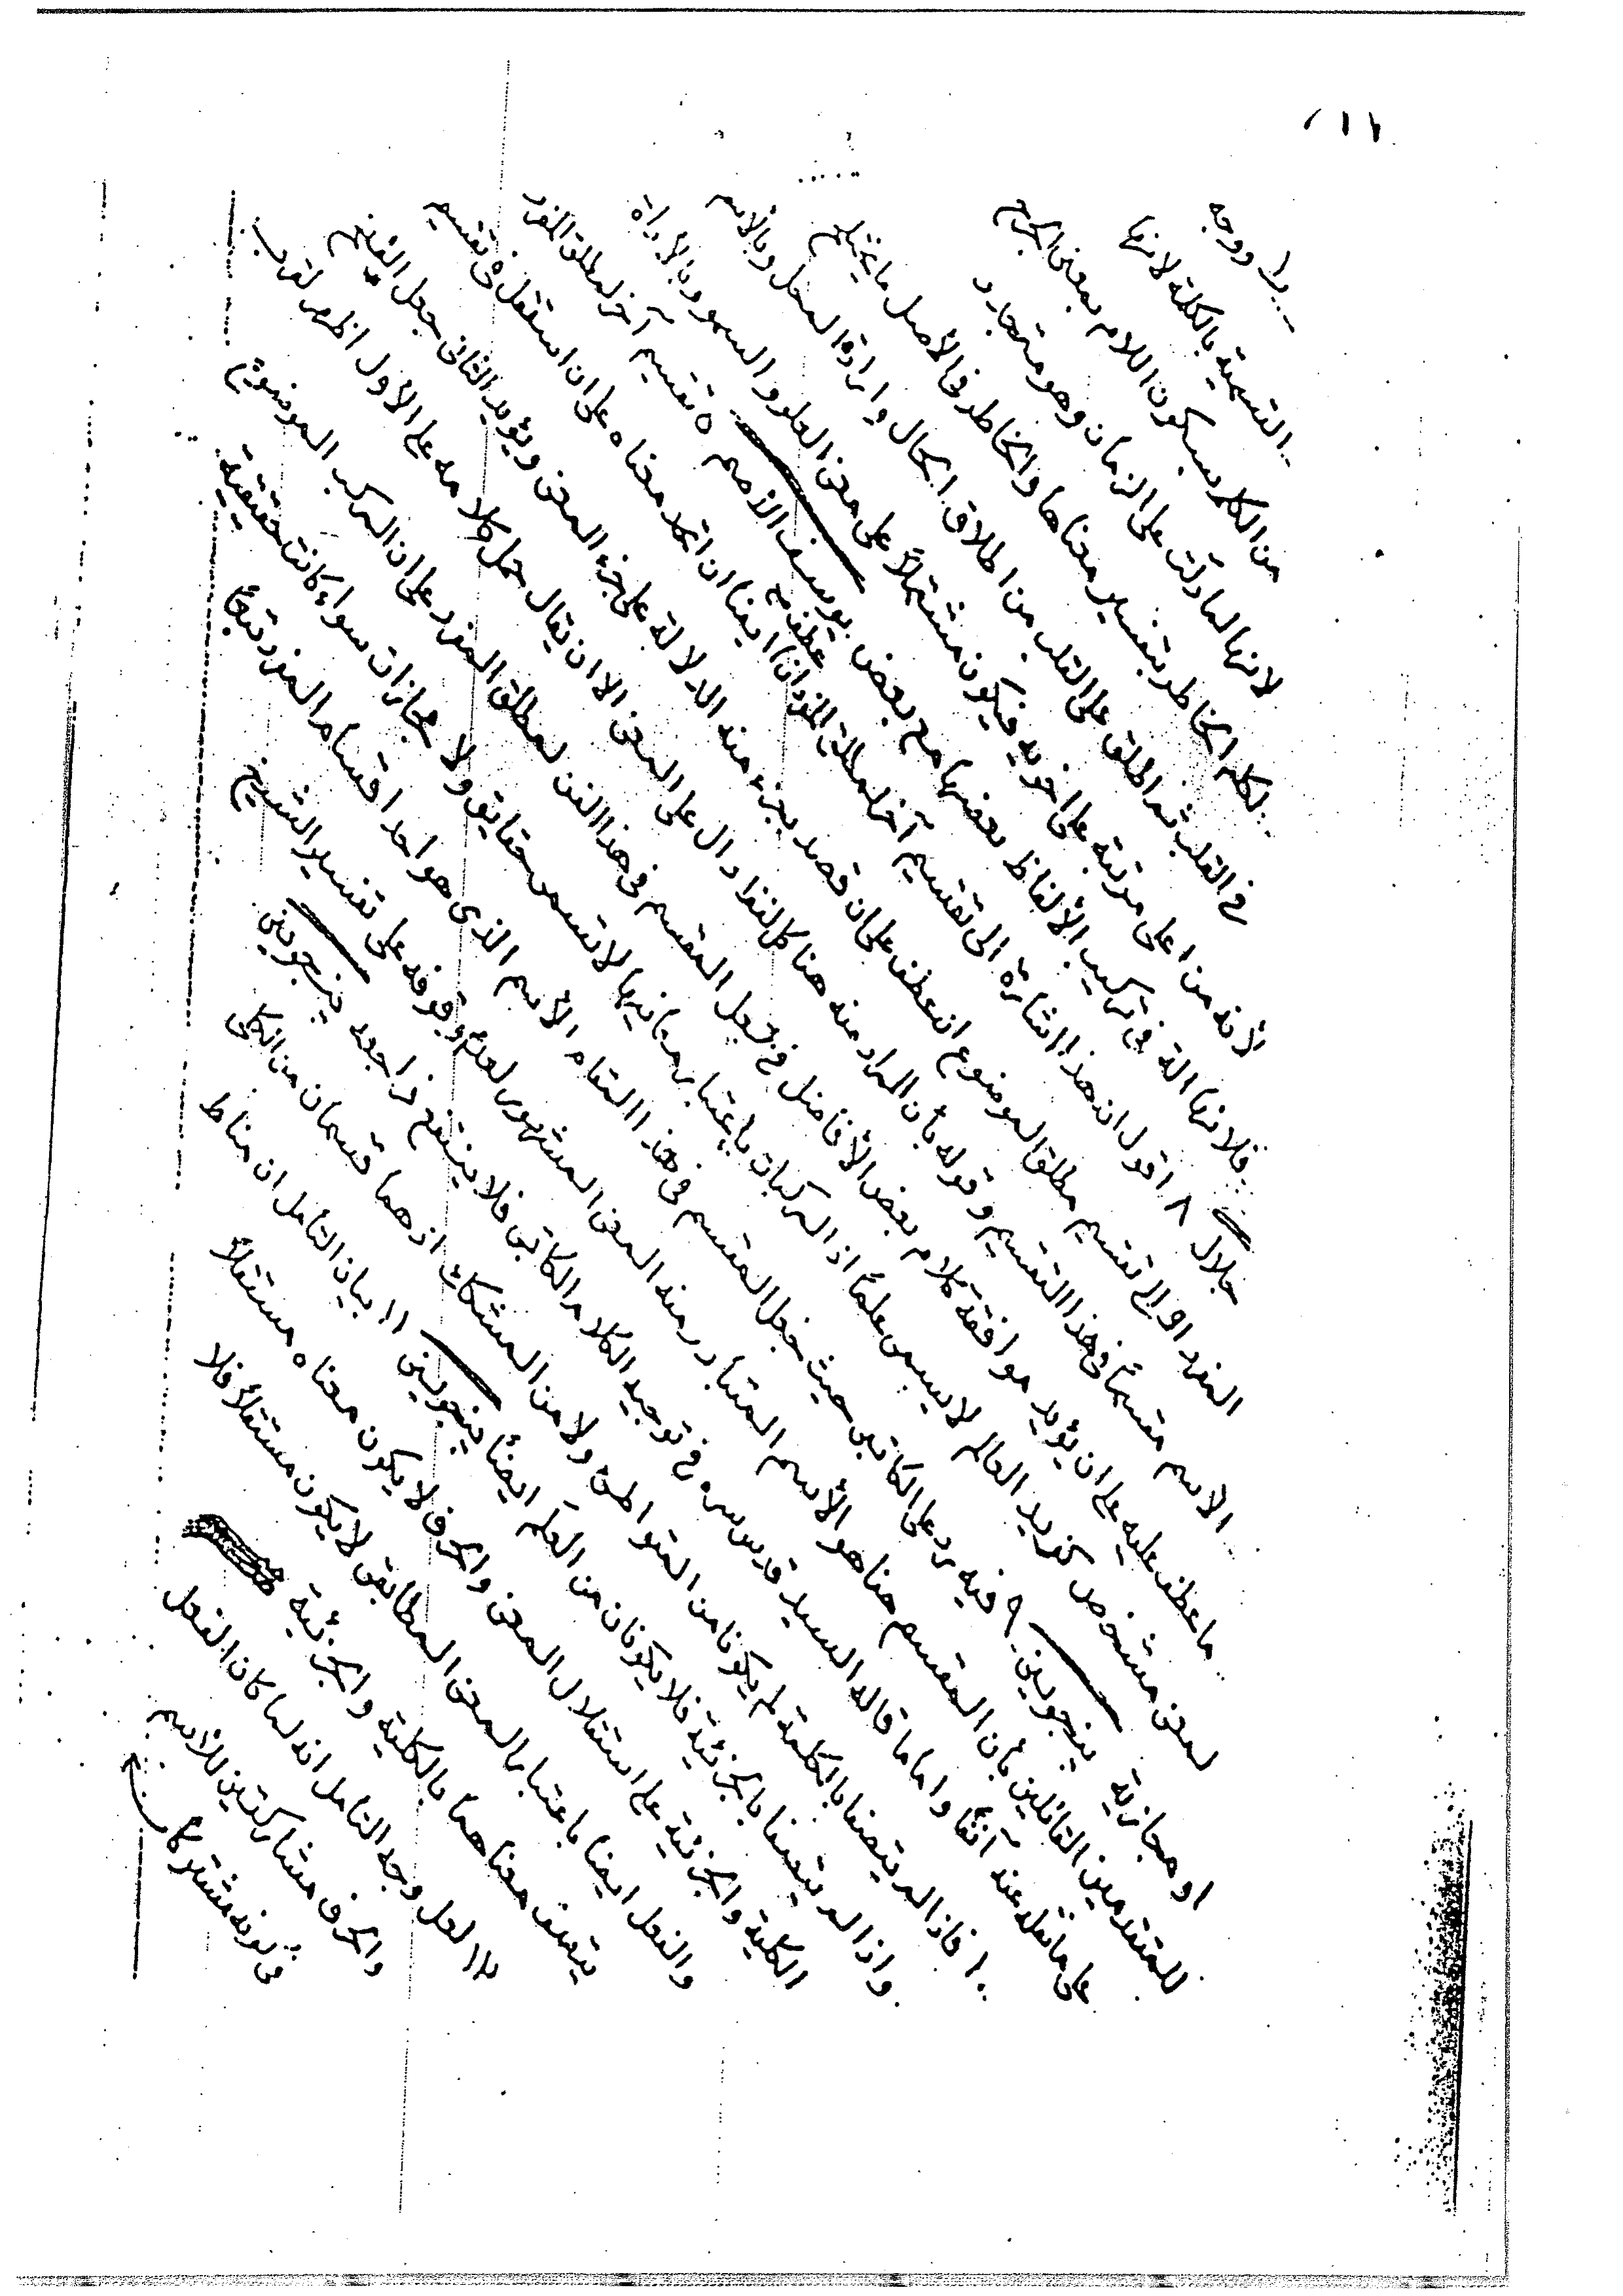 ١١٢
بدا ووجه
التسمية بالكلمة لانها
من الكلم بسكون اللام بمعنى الجرح
لانها لما دلت على الزمان وهو متجدد
لكلم الخاطر بتغيير معناها والخاطر في الأصل ما يختلج
في القلب ثم اطلق على القلب من اطلاق الحال وارادة المحل وبالأسم
لأنه من اعلى مرتبة على اخويه فيكون مشتملاً على معنى العلو والسمو وبالأداة
فلانها الة في تركيب الألفاظ بعضها مع بعض يوسف الأصم ٥ تقسيم آخر لمطلق المفرد
جلال ٨ اقول ان هذا اشارة الى تقسيم آخر لمطلق المفرد ان ايضا ان اتحد معناه على ان استقل في تقسيم
المفرد اولى تقسيم مطلق الموضوع انعطف على ان قصد بجزء منه الدلالة على جزء المعنى ويؤيد الثاني جعل الشيخ
الاسم مقسماً في هذا التقسيم وقوله بأن المراد منه هنا كل لفظ دال على المعنى الا ان يقال حمل كلامه على الأول اظهر لقرب
ما عطف عليه على ان يؤيد موافقة كلام بعض الأفاضل في جعل المقسم في هذا الفن لمطلق المفرد على ان المركب الموضوع
لمعنى مشخص كزيد العالم لا يسمى علماً اذ المركبات بأعتبار معانيها لا تسمى حقايق ولا مجازات سواء كانت حقيقية
او مجازية ينجويني ٩ فيه رد على الكاتبي حيث جعل المقسم في هذا المقام الأسم الذي هو احد اقسام المفرد تبعاً
للمتقدمين القائلين بأن المقسم هنا هو الأسم المتبادر منه المعنى المشهور لعدم وقوفه على تفسير الشيخ
على ما نقله عنه آنفاً واما ما قاله السيد قدس سره في توجيه الكلام الكاتبي فلا ينتج فراجعه ينجويني
١٠ فاذا لم يتصفا بالكلية لم يكونا من المتواطئ ولا من المشكك اذ هما قسمان من الكلي
واذا لم يتصفا بالجزئية فلا يكونان من العلم ايضاً ينجويني ١١ بيان التأمل ان مناط
الكلية والجزئية على استقلال المعنى والحرف لا يكون معناه مستقلاً
والفعل ايضا باعتبار المعنى المطابقي لا يكون مستقلاً فلا
يتصف معناهما بالكلية والجزئية
١٢ لعل وجه التأمل انه لما كان الفعل
والحرف مشاركتين للأسم
في كونه مشتركاً